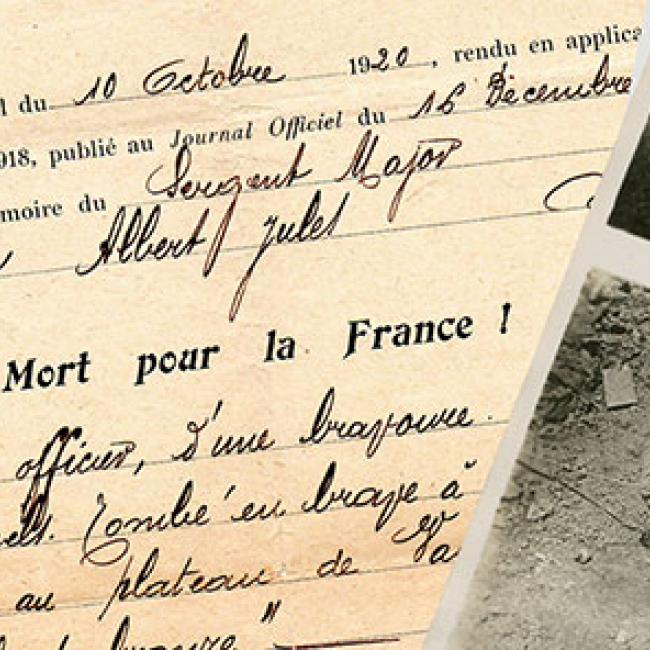 du 10 Octobre 1920, rendu en applica
918, publié au Journal Officiel du 16 Décembre
moire du Sergent Major
Albert Jules
Mort pour la France !
officier, d'une bravoure.
Tombé en brave à
au plateau de
"